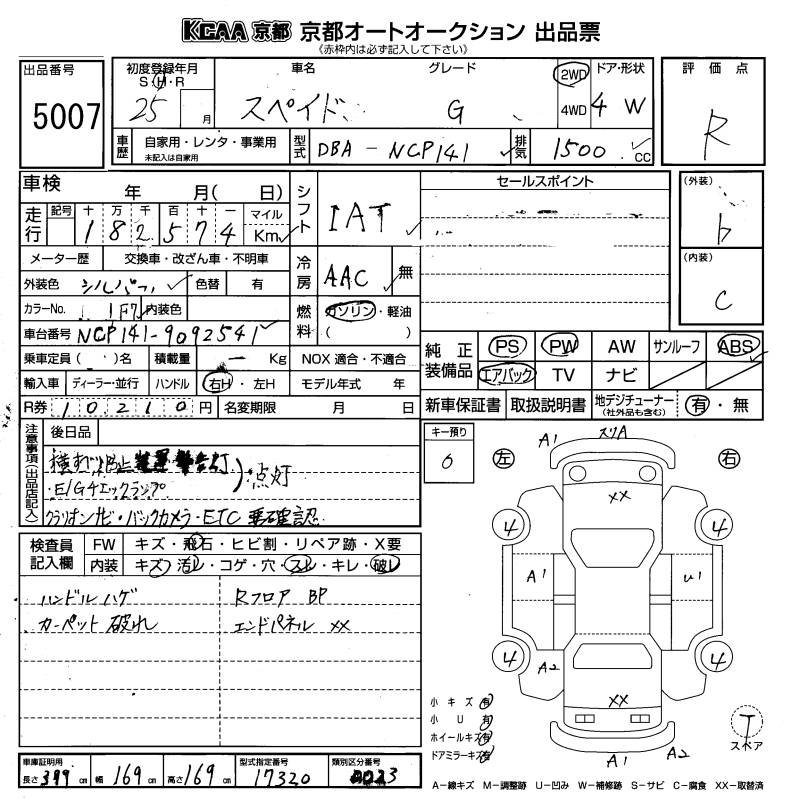 KCAA 京都 京都オートオークション 出品票
《赤枠内は必ず記入して下さい》
出品番号 5007
初度登録年月 S・H・R 25 月
車名 スペイド
グレード G
2WD 4WD
ドア・形状 4 W
評価点 R
車歴 自家用・レンタ・事業用 未記入は自家用
型式 DBA-NCP141
排気 1500 cc
車検 年 月( 日)
シフト IAT
セールスポイント
(外装) b
走行 記号 十 万 千 百 十 一 マイル Km
1 8 2 5 7 4
メーター歴 交換車・改ざん車・不明車
冷房 AAC 無
(内装) C
外装色 シルバー 色替 有
カラーNo. 1F7 内装色
燃料 ガソリン・軽油 ( )
車台番号 NCP141-9092541
乗車定員 ( )名 積載量 ー Kg NOX 適合・不適合
純正装備品 PS PW AW サンルーフ ABS
エアバック TV ナビ
輸入車 ディーラー・並行 ハンドル 右H・左H モデル年式 年
R券 10210円 名変期限 月 日
新車保証書 取扱説明書 地デジチューナー (社外品も含む) 有・無
注意事項(出品店記入)
後日品
横すべり防止装置警告灯
・E/Gチェックランプ ):点灯
クラリオンナビ・バックカメラ・ETC 要確認
キー預り 0
左 右
A1 スリA
XX
4 4
A1 U1
4 4
A2
XX
A1 A2
検査員記入欄 FW キズ・飛石・ヒビ割・リペア跡・X要
内装 キズ・汚レ・コゲ・穴・スレ・キレ・破レ
ハンドルハゲ Rフロア BP
カーペット 破れ エンドパネル XX
小キズ 有
小U 有
ホイールキズ 有
ドアミラーキズ 有
T スペア
車庫証明用 長さ 399 cm 幅 169 cm 高さ 169 cm
型式指定番号 17320
類別区分番号
A-線キズ M-調整跡 U-凹み W-補修跡 S-サビ C-腐食 XX-取替済